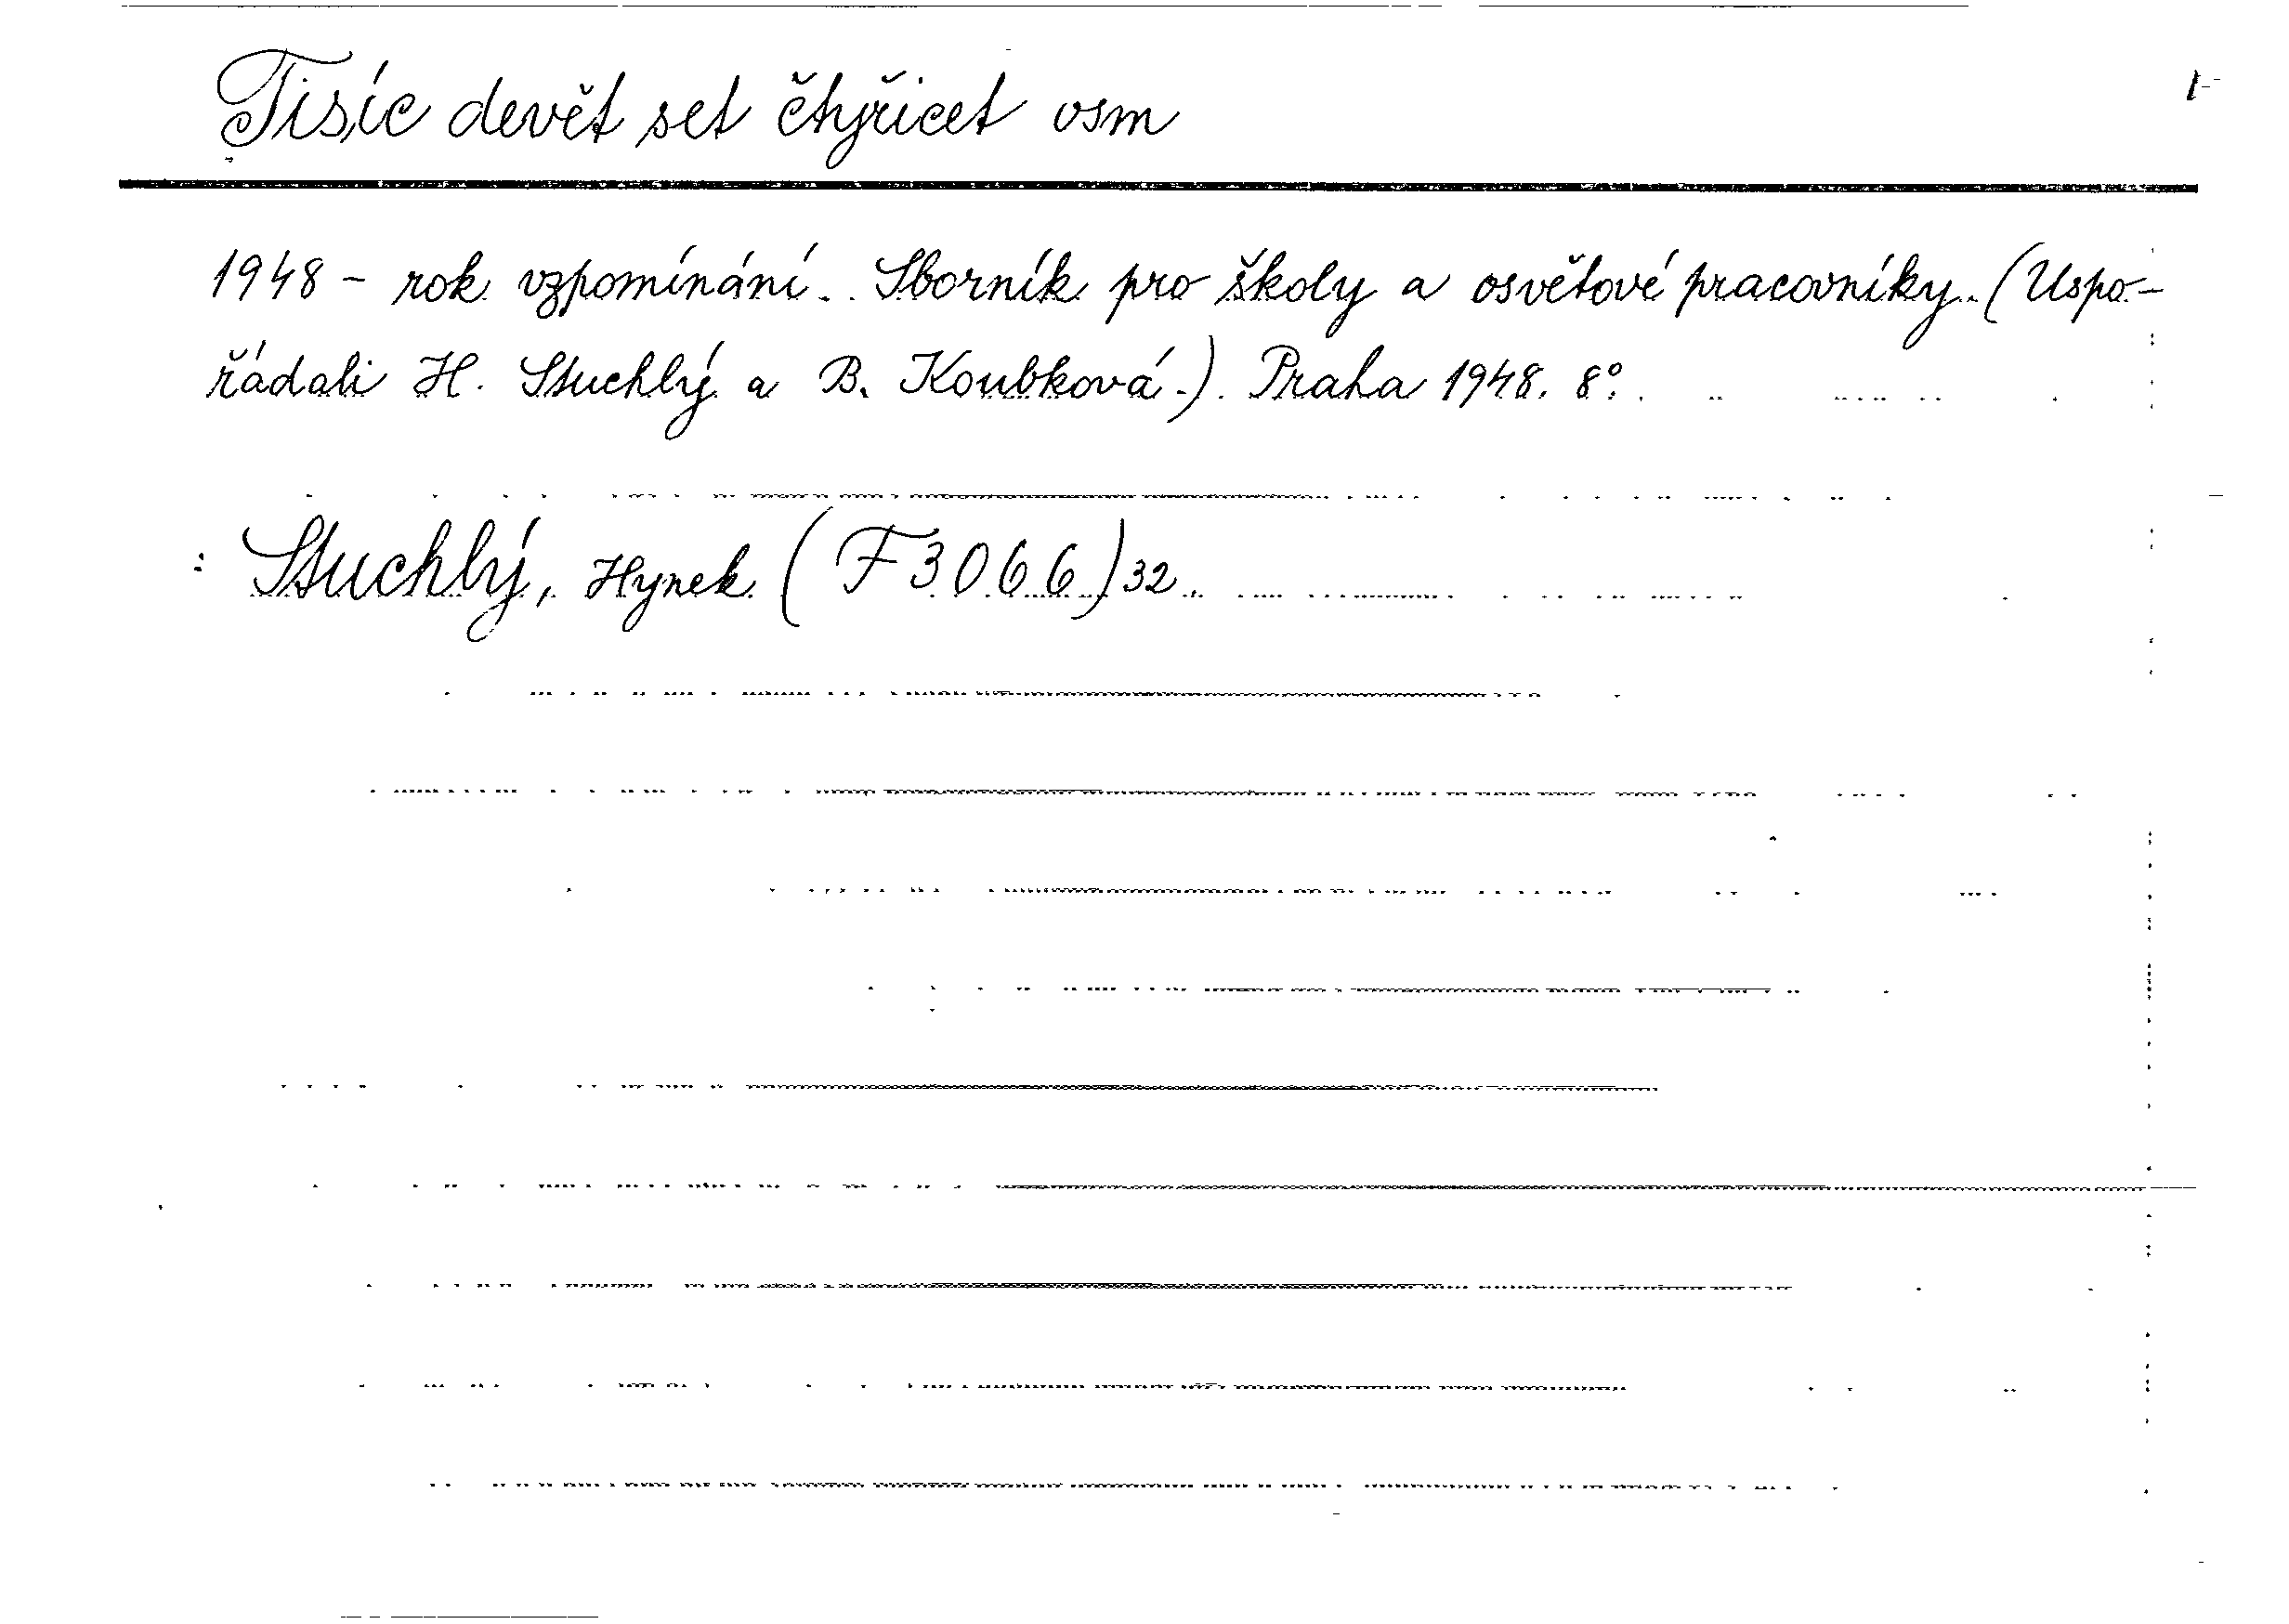 Tisíc devět set čtyřicet osm
1948 - rok vzpomínání. Sborník pro školy a osvětové pracovníky. (Uspo-
řádali H. Stuchlý a B. Koubková.). Praha 1948. 8°.
: Stuchlý, Hynek (F 3066) 32